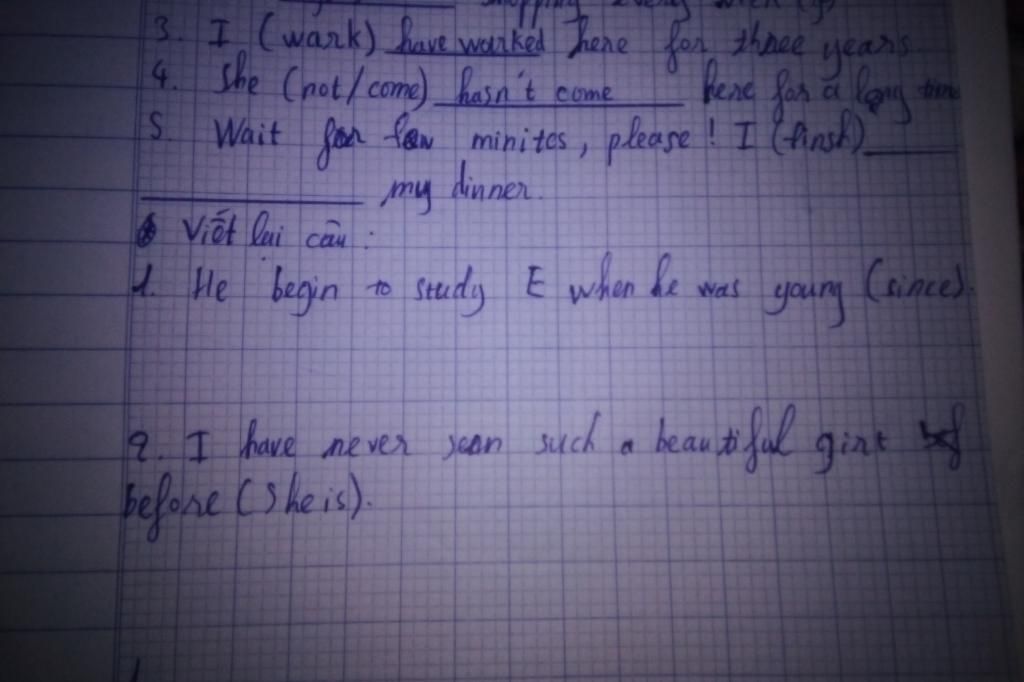 shopping every when (go)
3. I (wark) have worked here for three years
4. She (not/come) hasn't come here for a long time
5. Wait for few minites, please! I (finsh)
my dinner.
Viết lại câu:
1. He begin to study E when he was young (since).
2. I have never seen such a beautiful girl
before (She is).